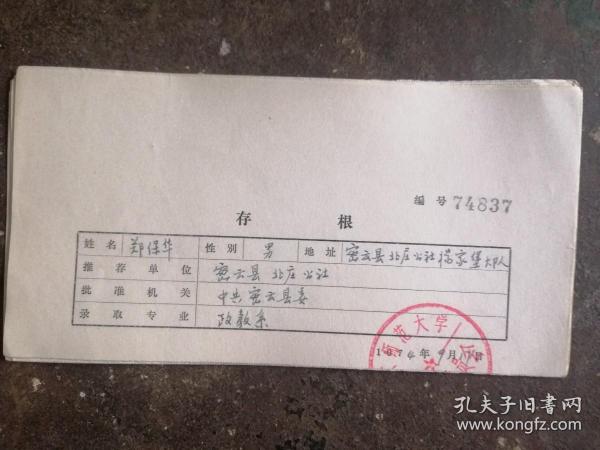 编号 74837
存 根
姓名 郑保华 性别 男 地址 密云县北庄公社杨家堡大队
推荐单位 密云县北庄公社
批准机关 中共密云县委
录取专业 政教系
范大学
1974年9月 日
孔夫子旧书网
www.kongfz.com